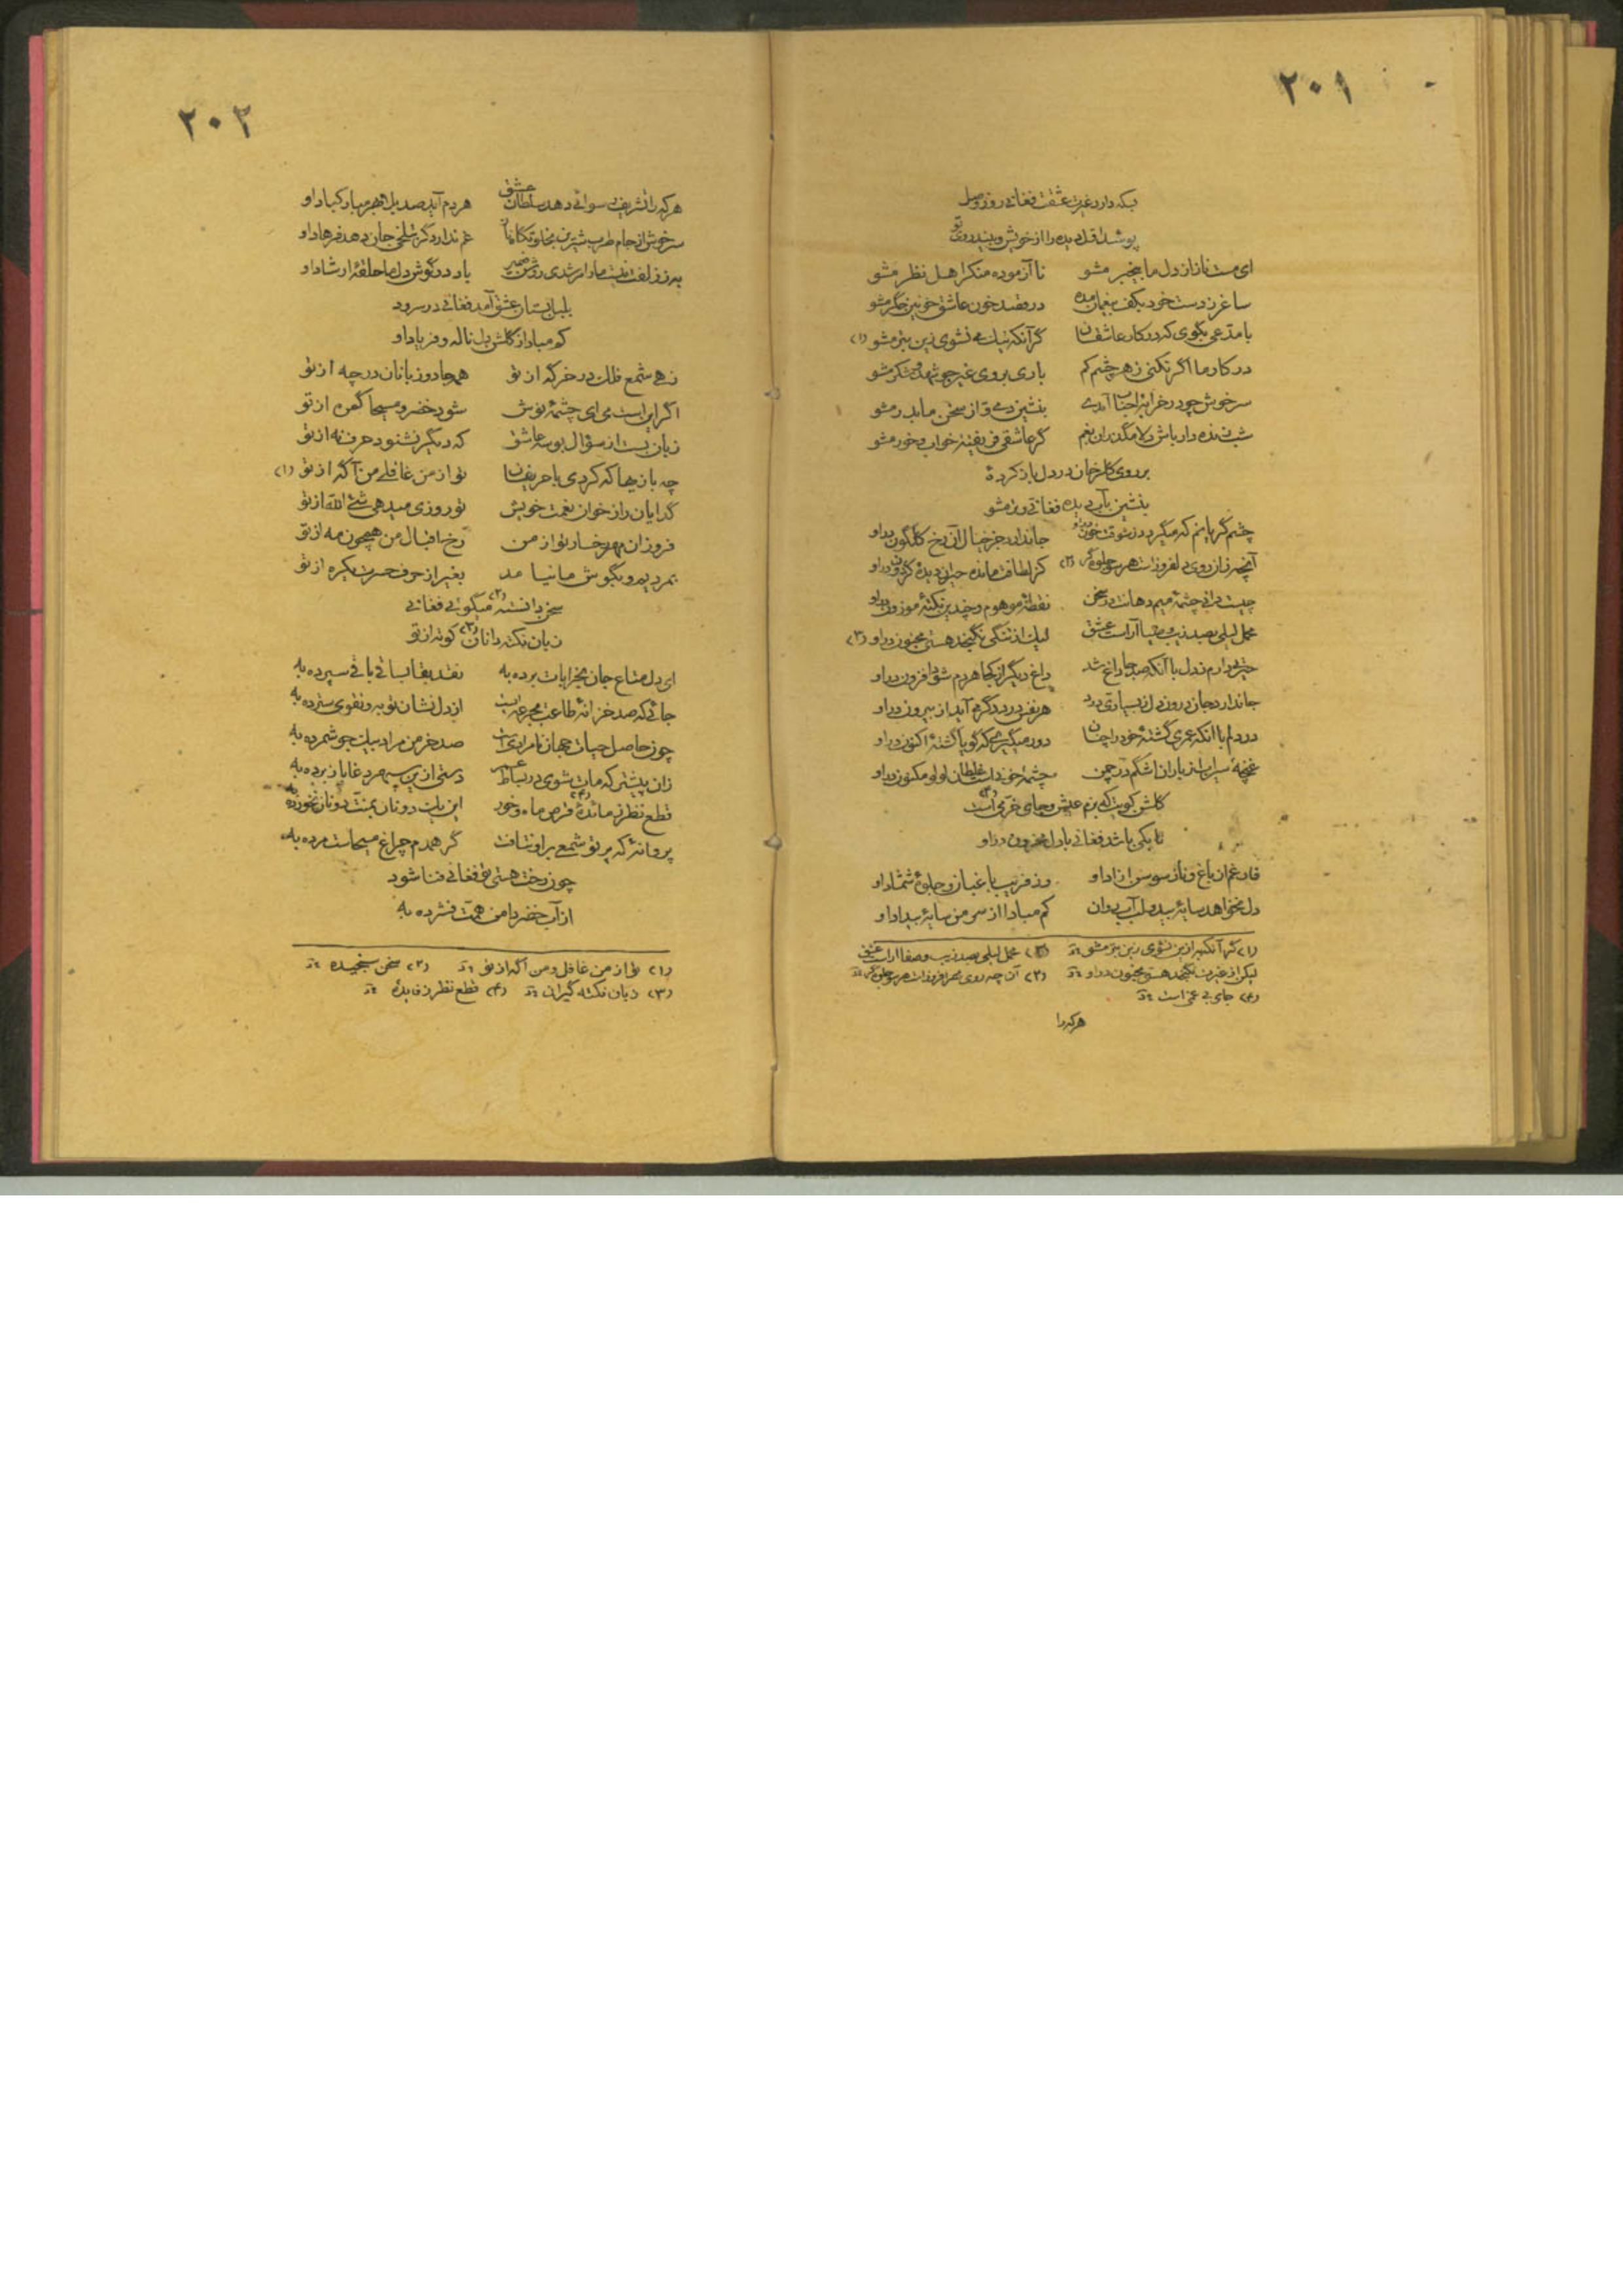 ۲۰۱
بکه دارد غیرت عشقت فغانی روز وصل
پوشد اول دیده را از خویش و بیند روی تو
ای مست ناز از دل ما بیخبر مشو نا آزموده منکر اهل نظر مشو
ساغر ز دست خود بکف بیغمان مده در قصد خون عاشق خونین جگر مشو
با مدعی بگوی که در کار عاشقان گر آنکه نیک می نشوی زین بتر مشو (۱)
در کار ما اگر نکنی زهر چشم کم باری بروی غیر چو شهد و شکر مشو
سرخوش چو در خرابهٔ احباب آمدی بنشین دمی و از سخن ما بدر مشو
شب زنده دار باش دلا مگذران بغم گر عاشقی فریفتهٔ خواب و خور مشو
بر روی گلرخان در دل باز کردهٔ
بنشین بآب دیده فغانی و تر مشو
چشم گریانم که میگردد ز شوقت خون درو جا ندارد جز خیال آن رخ گلگون درو
آنچه زان روی دلفروزات هر سو جلوه گر (۲) کز لطافت مانده حیران دیدهٔ گردون درو
چیست دانی چشمهٔ میم دهانت در سخن نقطهٔ موهوم و چندین نکتهٔ موزون درو
محمل لیلی بصد زیب و صفا آراست عشق لیک از تنگی نگنجد هستی مجنون درو (۳)
حیرتی دارم ز دل با آنکه صد جا داغ شد داغ دیگر از کجا هر دم شود افزون درو
جا ندارد جان درون دل ز بسیاری درد هر نفس درد دگر می آید از بیرون درو
در دلم با آنکه عمری گشتهٔ خود را چنان دور میگیرم که گویا گشتهٔ اکنون درو
غنچهٔ سیراب از باران اشکم در چمن چشمهٔ خونست غلطان لولو مکنون درو
گلشن کویت که بزم عیش و جای خرمی است (۴)
تا بکی باشد فغانی با دل محزون درو
فارغم از باغ و ناز سوسن آزاد او وز فریب باغبان و جلوهٔ شمشاد او
دل نخواهد سایهٔ بید و لب آب روان کم مبادا از سر من سایهٔ بیداد او
(۱) گر آنکه به ازین نشوی زین بتر مشو (۳) محمل لیلی بصد زیب و صفا آراست عشق
لیکن از غیرت نگنجد هستی مجنون درو (۲) آن چه روی مهر افروزات هر سو جلوه گر
(۴) جای بی غمی است
هر که را
۲۰۲
هر که را تشریف رسوائی دهد سلطان عشق هر دم آید صد بلا بهر مبارکباد او
سرخوش از جام طرب شیرین بخلوتگاه ناز غم ندارد گر بتلخی جان دهد فرهاد او
پیر زلفت نیست ما را مرشدی روشن ضمیر باد در گوش دل ما حلقهٔ ارشاد او
بلبل بستان عشق آمد فغانی در سرود
کم مبادا از گلشن دل ناله و فریاد او
زهی شمع فلک در خرگه از تو همه جادو زبانان در چه از تو
اگر این است می ای چشمهٔ نوش شود خضر و مسیحا گمره از تو
زبان بست از سؤال بوسه عاشق که دیگر نشنود حرف نه از تو
چه بازیها که کردی با حریفان تو از من غافلی من آگه از تو (۱)
گدایان را ز خوان نعمت خویش تو روزی میدهی شیئ الله از تو
فروزان مهر رخسار تو از من رخ اقبال من همچون مه از تو
بمردیم و بگوش ما نیامد بغیر از حرف حسرت یکره از تو
سخن دانسته (۲) میگوئی فغانی
زبان نکته دانان (۳) کوته از تو
ای دل متاع جان بخرابات برده به نقد بقا بساقی باقی سپرده به
جائی که صد خزانهٔ طاعت بجرعه ایست از دل نشان توبه و تقوی سترده به
چون حاصل حیات جهان نامرادی است صد خرمن مراد بیک جو شمرده به
زان پیشتر که مات شوی در بساط عمر دستی ازین سپهر دغاباز برده به
قطع نظر ز مائدهٔ (۴) قرص ماه و خور این یک دو نان بمنت دونان نخورده به
پروانهٔ که پرتو شمعی برو نتافت گر همدم چراغ مسیحاست مرده به
چون رخت هستی تو فغانی فنا شود
از آب خضر دامن همت فشرده به
(۱) تو از من غافل و من آگه از تو (۲) سخن سنجیده
(۳) زبان نکته گیران (۴) قطع نظر ز فایدهٔ